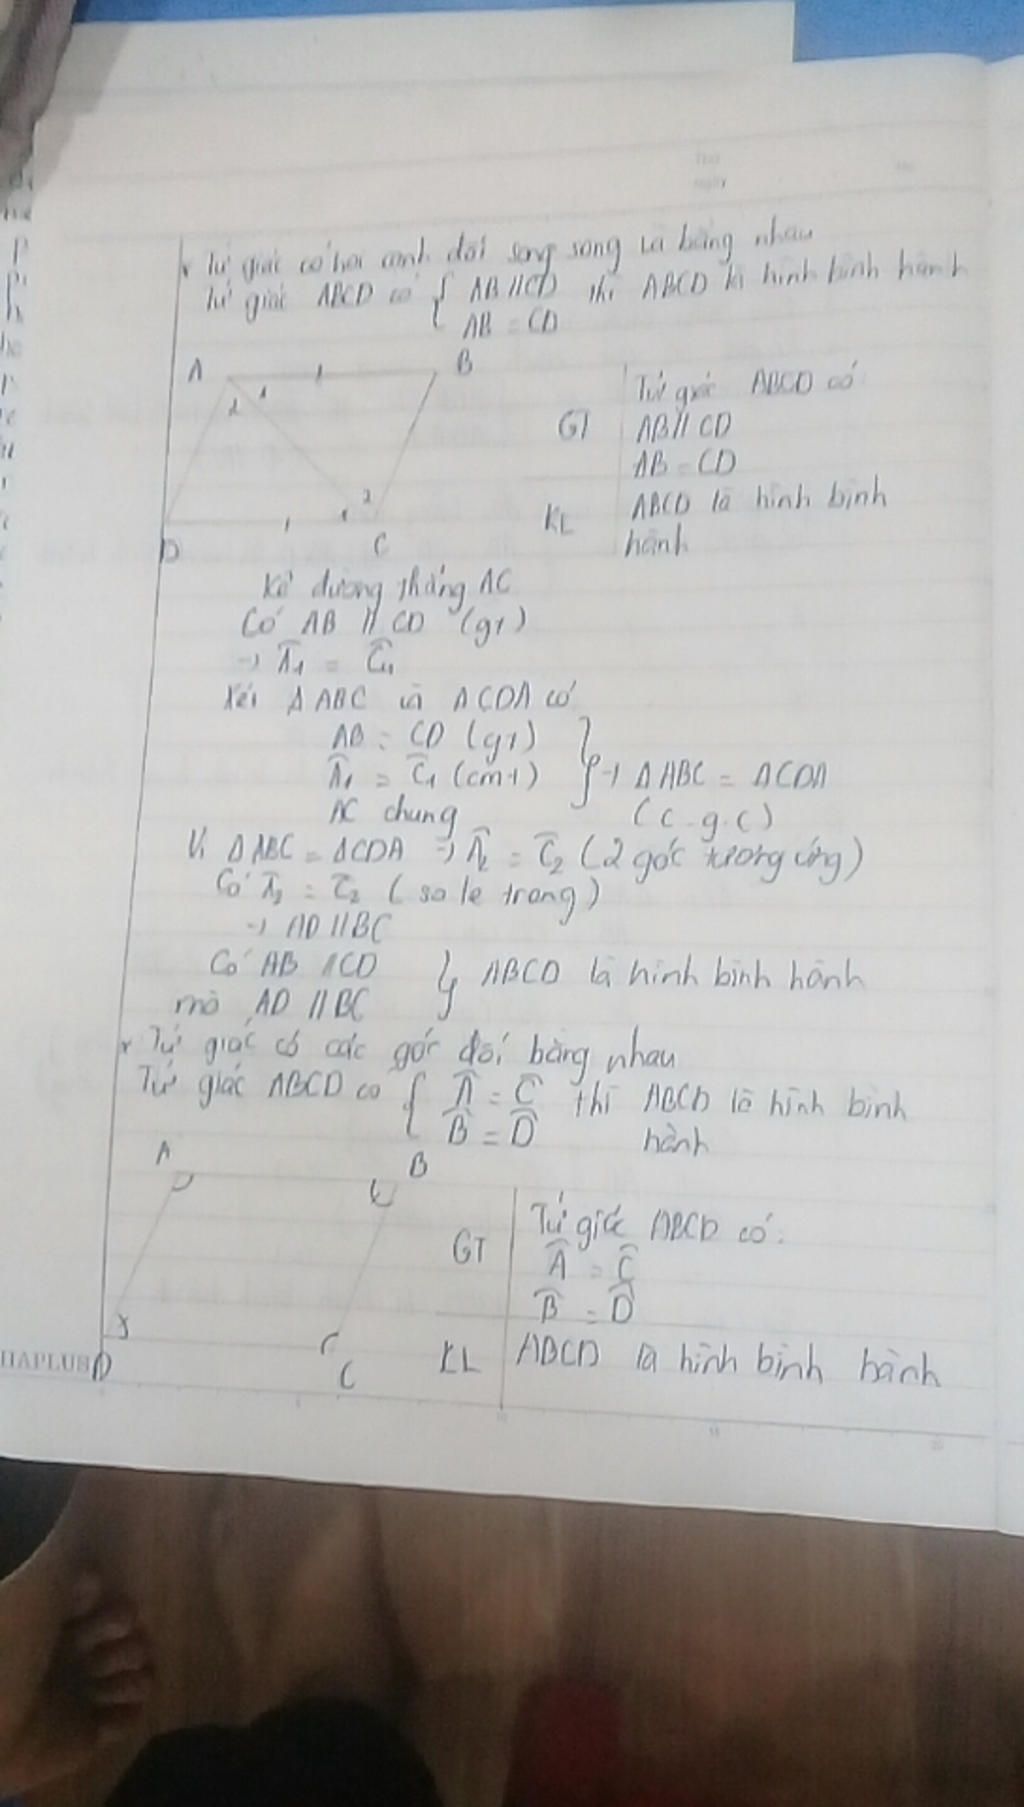 * Tứ giác có hai cạnh đối song song và bằng nhau
Tứ giác ABCD có { AB // CD thì ABCD là hình bình hành
AB = CD
A B
1
2
2
1
D C
GT Tứ giác ABCD có
AB // CD
AB = CD
KL ABCD là hình bình
hành
Kẻ đường thẳng AC
Có AB // CD (gt)
→ Â1 = Ĉ1
Xét Δ ABC và Δ CDA có
AB = CD (gt)
Â1 = Ĉ1 (cmt) } → Δ ABC = Δ CDA
AC chung (c.g.c)
Vì Δ ABC = Δ CDA → Â2 = Ĉ2 (2 góc tương ứng)
Có Â2 = Ĉ2 (so le trong)
→ AD // BC
Có AB // CD } ABCD là hình bình hành
mà AD // BC
* Tứ giác có các góc đối bằng nhau
Tứ giác ABCD có { Â = Ĉ thì ABCD là hình bình
B̂ = D̂ hành
A B
D C
GT Tứ giác ABCD có:
Â = Ĉ
B̂ = D̂
KL ABCD là hình bình hành
HAPLUS